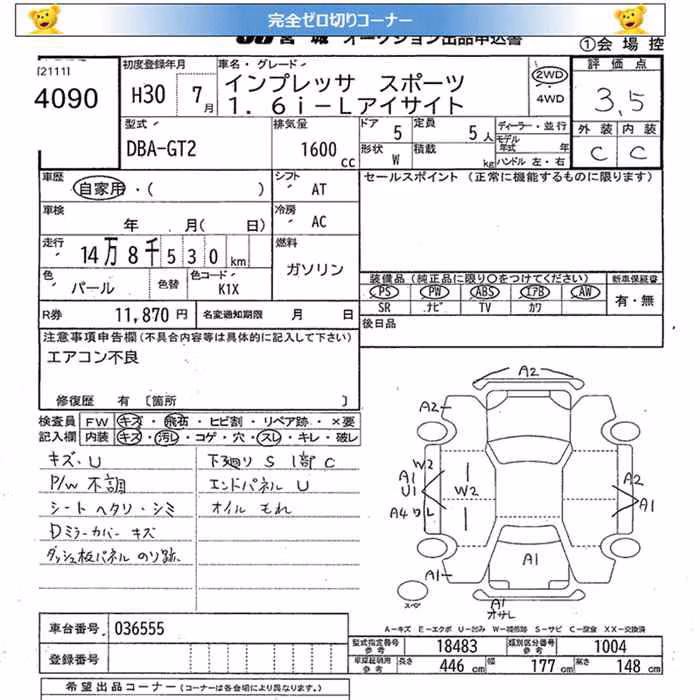 完全ゼロ切りコーナー
JU宮城 オークション出品申込書
①会場控
[2111]
4090
初度登録年月
H30 7月
車名・グレード
インプレッサ スポーツ
1.6i-Lアイサイト
2WD
4WD
評価点
3,5
外装 内装
C C
型式
DBA-GT2
排気量
1600cc
ドア 5
定員 5人
形状 W
積載 kg
ディーラー・並行
モデル年式 年
ハンドル 左・右
車歴
自家用・( )
シフト
AT
セールスポイント (正常に機能するものに限ります)
車検
年 月( 日)
冷房
AC
走行
14万8千530km
燃料
ガソリン
色
パール
色替
色コード
K1X
装備品(純正品に限り○をつけてください)
新車保証書
PS PW ABS エアB AW
SR ナビ TV カワ
有・無
R券 11,870円
名変通知期限 月 日
後日品
注意事項申告欄(不具合内容等は具体的に記入して下さい)
エアコン不良
修復歴 有 〔箇所 〕
検査員記入欄
FW キズ・飛石・ヒビ割・リペア跡・×要
内装 キズ・汚レ・コゲ・穴・スレ・キレ・破レ
キズ、U
P/W 不調
シート ヘタリ・シミ
Dミラーカバー キズ
ダッシュ板パネル のリ跡
下廻り S 1部 C
エンドパネル U
オイル もれ
A2
A2
W2
A1
U1
W2
A4
A2
A1
A1
A1
A1
オサレ
スペア
A-キズ E-エクボ U-凹み W-補修跡 S-サビ C-腐食 XX-交換済
車台番号 036555
登録番号
型式指定番号 参考 18483
類別区分番号 参考 1004
車庫証明用 参考 長さ 446cm 幅 177cm 高さ 148cm
希望出品コーナー (コーナーは各会場により異なります。)